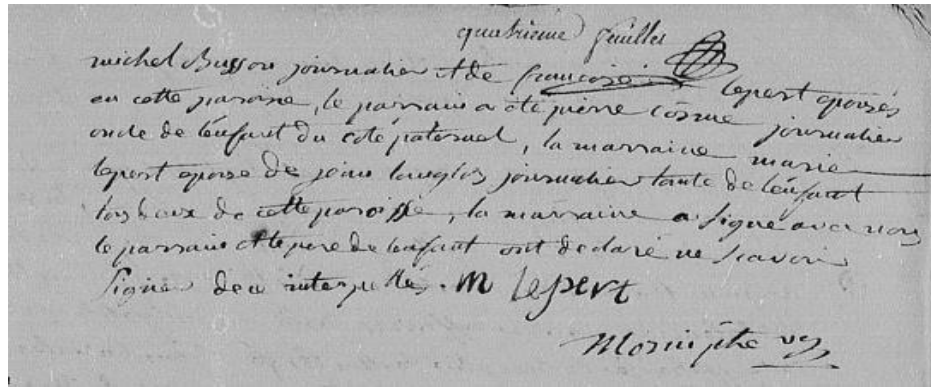 quatrieme feuillet
michel Busson journalier et de francoise lepert epousés
en cette paroisse, le parrain a été pierre cosme journalier
oncle de l'enfant du coté paternel, la marraine marie
lepert epouse de jean langlois journalier tante de l'enfant
tous deux de cette paroisse, la marraine a signé avec nous
le parrain et le pere de l'enfant ont declaré ne scavoir
signer de ce interpellés. m lepert